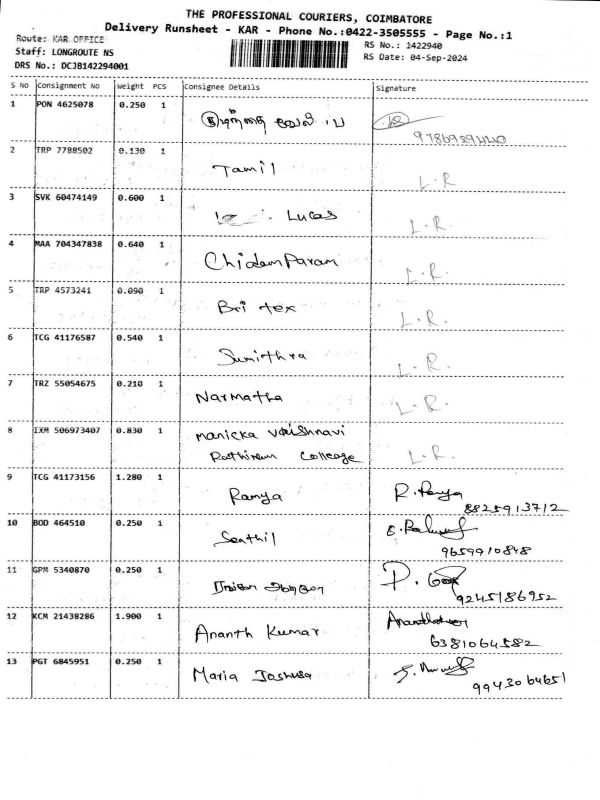 THE PROFESSIONAL COURIERS, COIMBATORE
Delivery Runsheet - KAR - Phone No.:0422-3505555 - Page No.:1
Route: KAR OFFICE
RS No.: 1422940
Staff: LONGROUTE NS
RS Date: 04-Sep-2024
DRS No.: DCJB142294001
S No Consignment No Weight PCS Consignee Details Signature
1 PON 4625078 0.250 1
2 TRP 7788502 0.130 1 Tamil L.R
3 SVK 60474149 0.600 1 Lucas L.R.
4 MAA 704347838 0.640 1 Chidamparam L.R.
5 TRP 4573241 0.090 1 Bri tex L.R.
6 TCG 41176587 0.540 1 Sumithra L.R.
7 TRZ 55054675 0.210 1 Narmatha L.R.
8 IXM 506973407 0.830 1 Manicka Vaishnavi
Rathinam Colleage L.R.
9 TCG 41173156 1.280 1 Ramya R. Ramya
8825913712
10 BOD 464510 0.250 1 Senthil
9659910848
11 GPM 5340870 0.250 1
9245186952
12 KCM 21438286 1.900 1 Ananth Kumar
6381064582
13 PGT 6845951 0.250 1 Maria Joshusa
9943064651